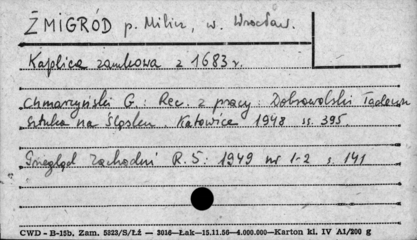 ŻMIGRÓD p. Milicz, w. Wrocław.
Kaplica zamkowa z 1683 r.
Chmarzyński G.: Rec. z pracy: Dobrowolski Tadeusz
Sztuka na Śląsku. Katowice 1948 ss. 395
Przegląd Zachodni R. 5: 1949 nr 1-2 s. 141
CWD - B-15b, Zam. 5323/S/Łż — 3036—Łak—15.11.56—4.000.000—Karton kl. IV A1/200 g